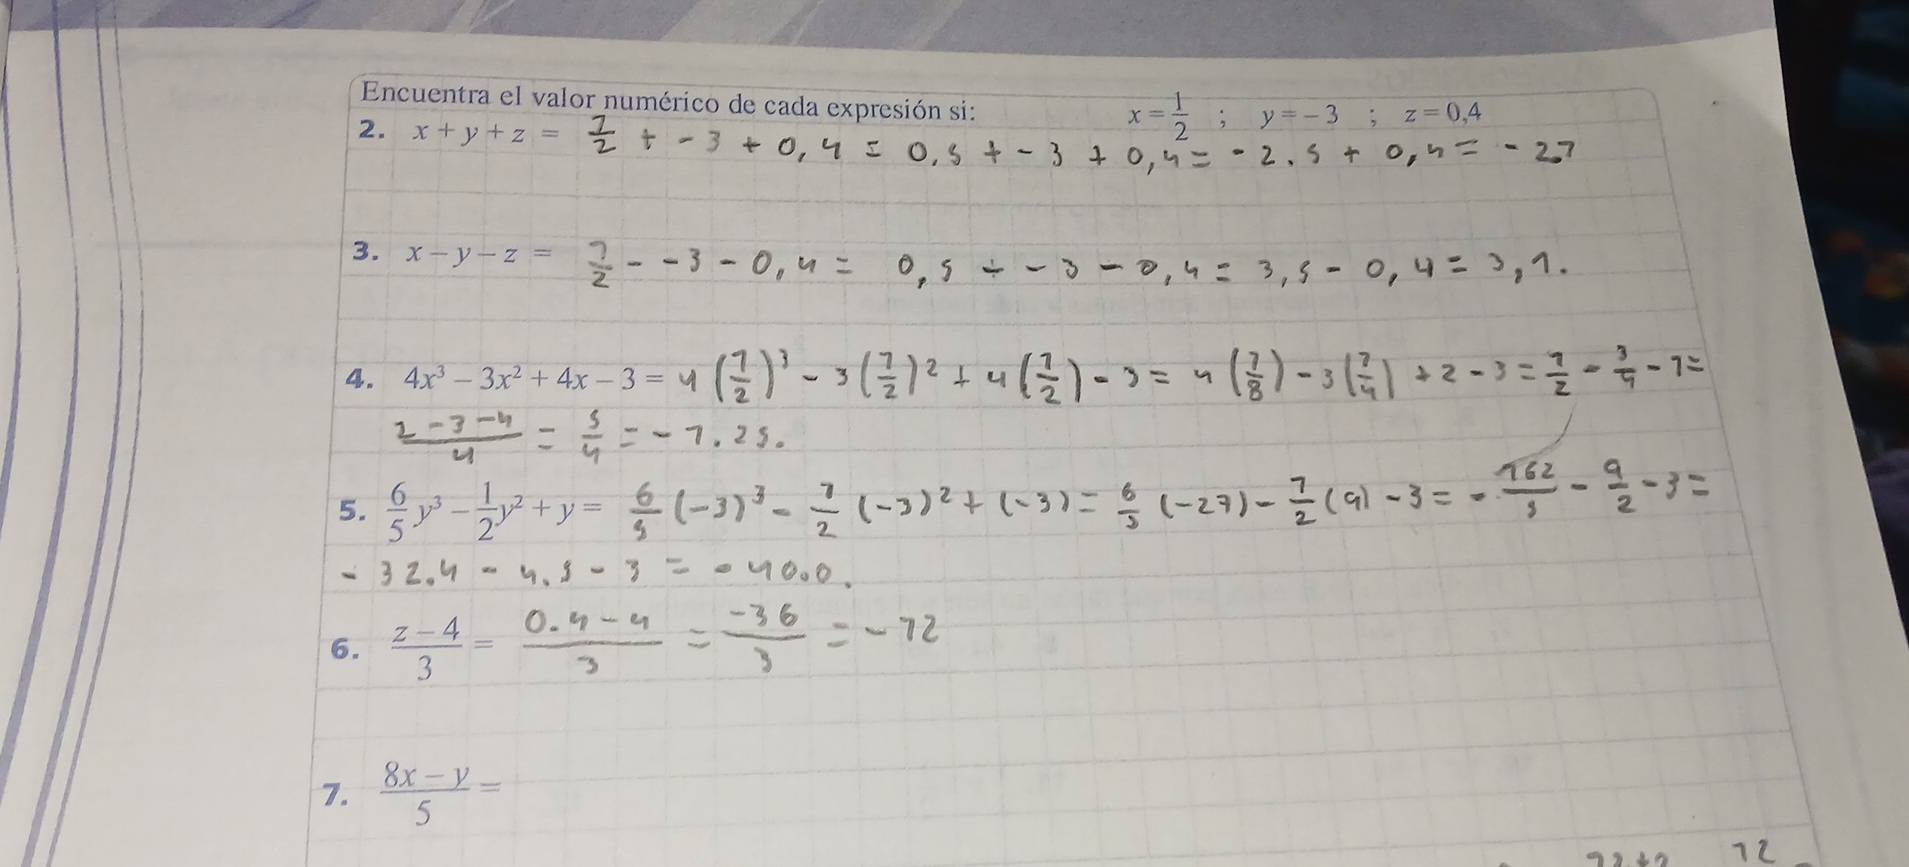 Encuentra el valor numérico de cada expresión si: x = 1/2 ; y = -3 ; z = 0,4
2. x + y + z = 1/2 + -3 + 0,4 = 0,5 + -3 + 0,4 = -2.5 + 0,4 = -2.7
3. x - y - z = 1/2 - -3 - 0,4 = 0,5 - -3 - 0,4 = 3,5 - 0,4 = 3,1.
4. 4x³ - 3x² + 4x - 3 = 4(1/2)³ - 3(1/2)² + 4(1/2) - 3 = 4(1/8) - 3(1/4) + 2 - 3 = 1/2 - 3/4 - 1 =
(2 - 3 - 4)/4 = 5/4 = -1.25.
5. 6/5 y³ - 1/2 y² + y = 6/5 (-3)³ - 1/2 (-3)² + (-3) = 6/5 (-27) - 1/2 (9) - 3 = -162/5 - 9/2 - 3 =
-32.4 - 4.5 - 3 = -40.0.
6. (z - 4)/3 = (0.4 - 4)/3 = -36/3 = -12
7. (8x - y)/5 =
12